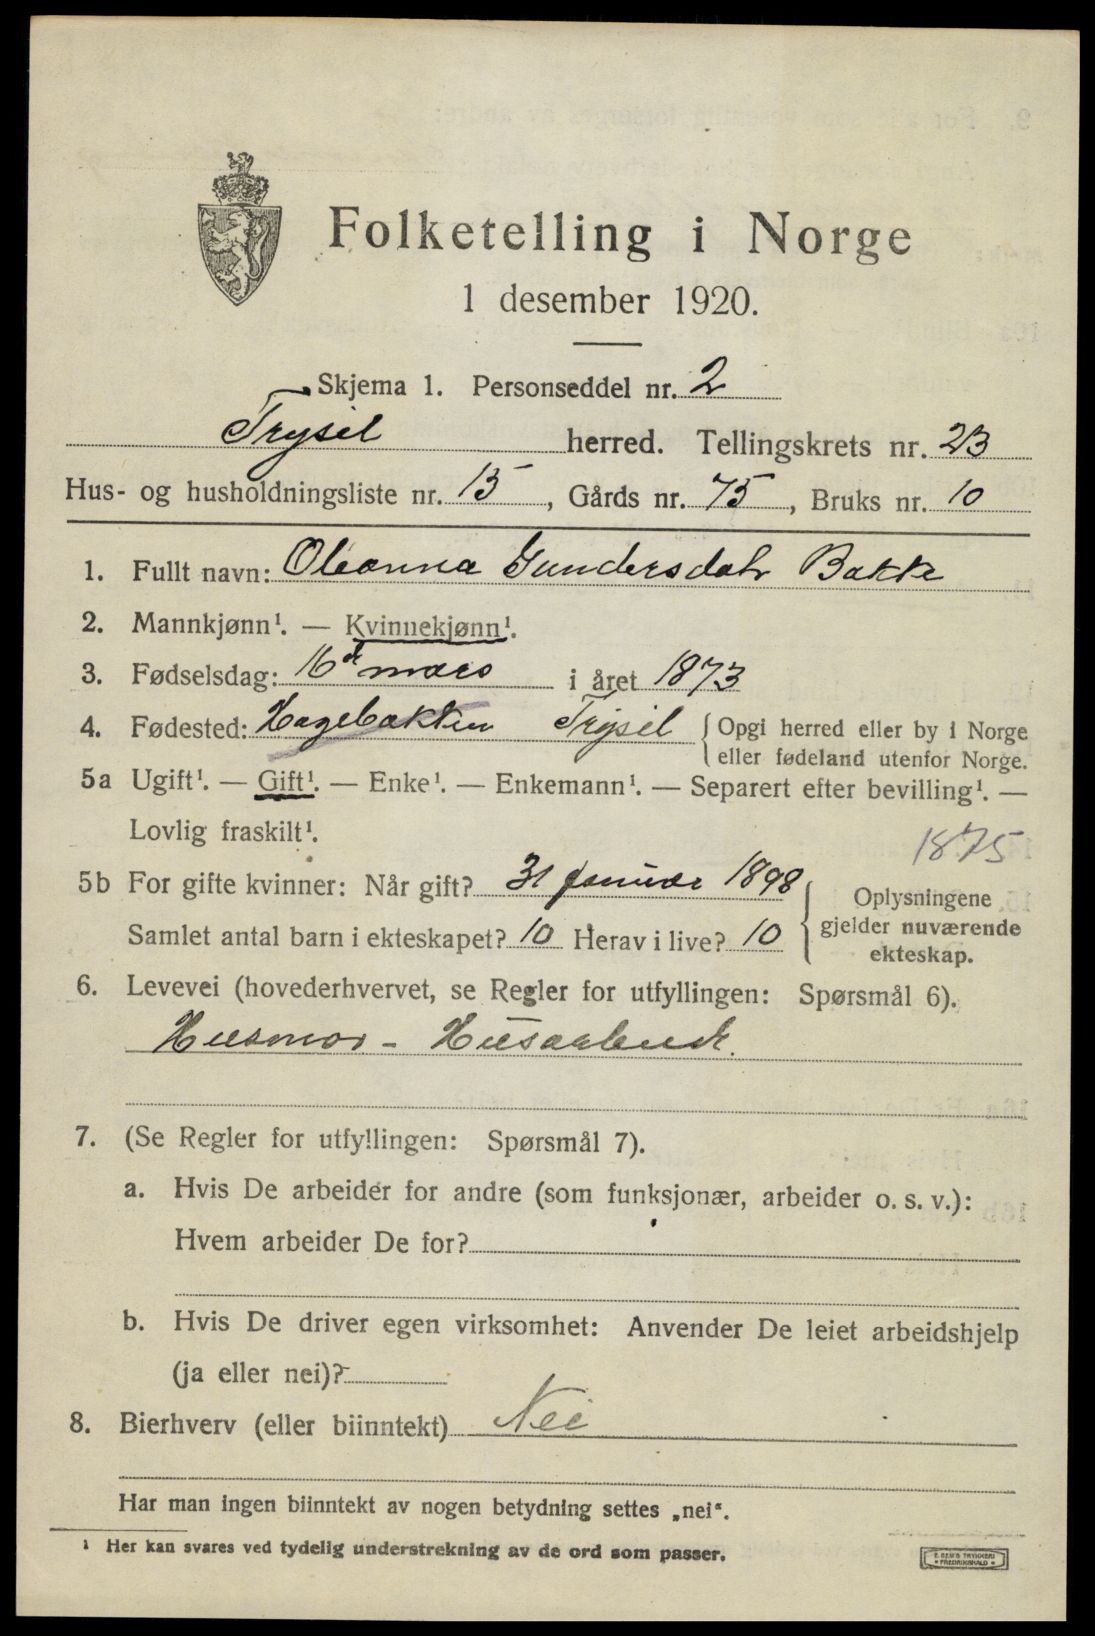 Folketelling i Norge
1 desember 1920.
Skjema 1. Personseddel nr. 2
Trysil herred. Tellingskrets nr. 23
Hus- og husholdningsliste nr. 15, Gårds nr. 75, Bruks nr. 10
1. Fullt navn: Oleanna Gundersdatr Bakke
2. Mannkjønn¹. — Kvinnekjønn¹.
3. Fødselsdag: 16de mars i året 1873
4. Fødested: Hagebakken Trysil { Opgi herred eller by i Norge
eller fødeland utenfor Norge.
5a Ugift¹. — Gift¹. — Enke¹. — Enkemann¹. — Separert efter bevilling¹. —
Lovlig fraskilt¹.
1875
5b For gifte kvinner: Når gift? 31 januar 1898
Samlet antal barn i ekteskapet? 10 Herav i live? 10
{ Oplysningene
gjelder nuværende
ekteskap.
6. Levevei (hovederhvervet, se Regler for utfyllingen: Spørsmål 6).
Husmor - Husarbeide.
7. (Se Regler for utfyllingen: Spørsmål 7).
a. Hvis De arbeider for andre (som funksjonær, arbeider o. s. v.):
Hvem arbeider De for?
b. Hvis De driver egen virksomhet: Anvender De leiet arbeidshjelp
(ja eller nei)?
8. Bierhverv (eller biinntekt) Nei
Har man ingen biinntekt av nogen betydning settes „nei".
¹ Her kan svares ved tydelig understrekning av de ord som passer.
E. SEM'S TRYKKERI
• FREDRIKSHALD •